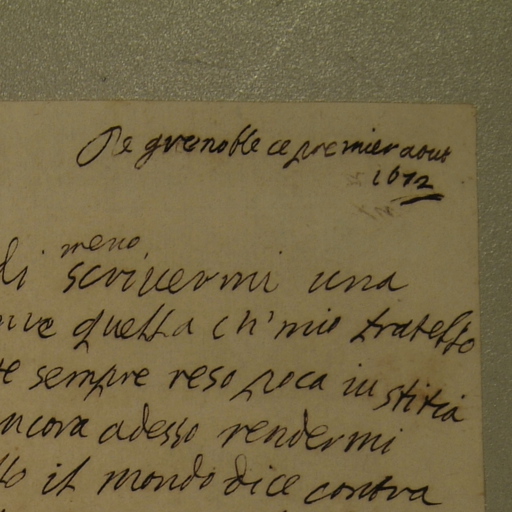 De grenoble ce premier aout
1672
meno
di scrivermi una
quella ch'mio fratello
sempre reso poca iustitia
ancora adesso rendermi
il mondo dice contra